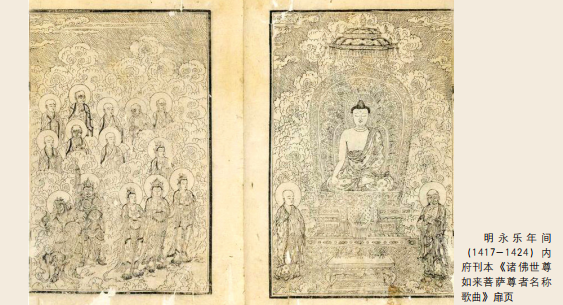 明永乐年间
(1417—1424) 内
府刊本《诸佛世尊
如来菩萨尊者名称
歌曲》扉页